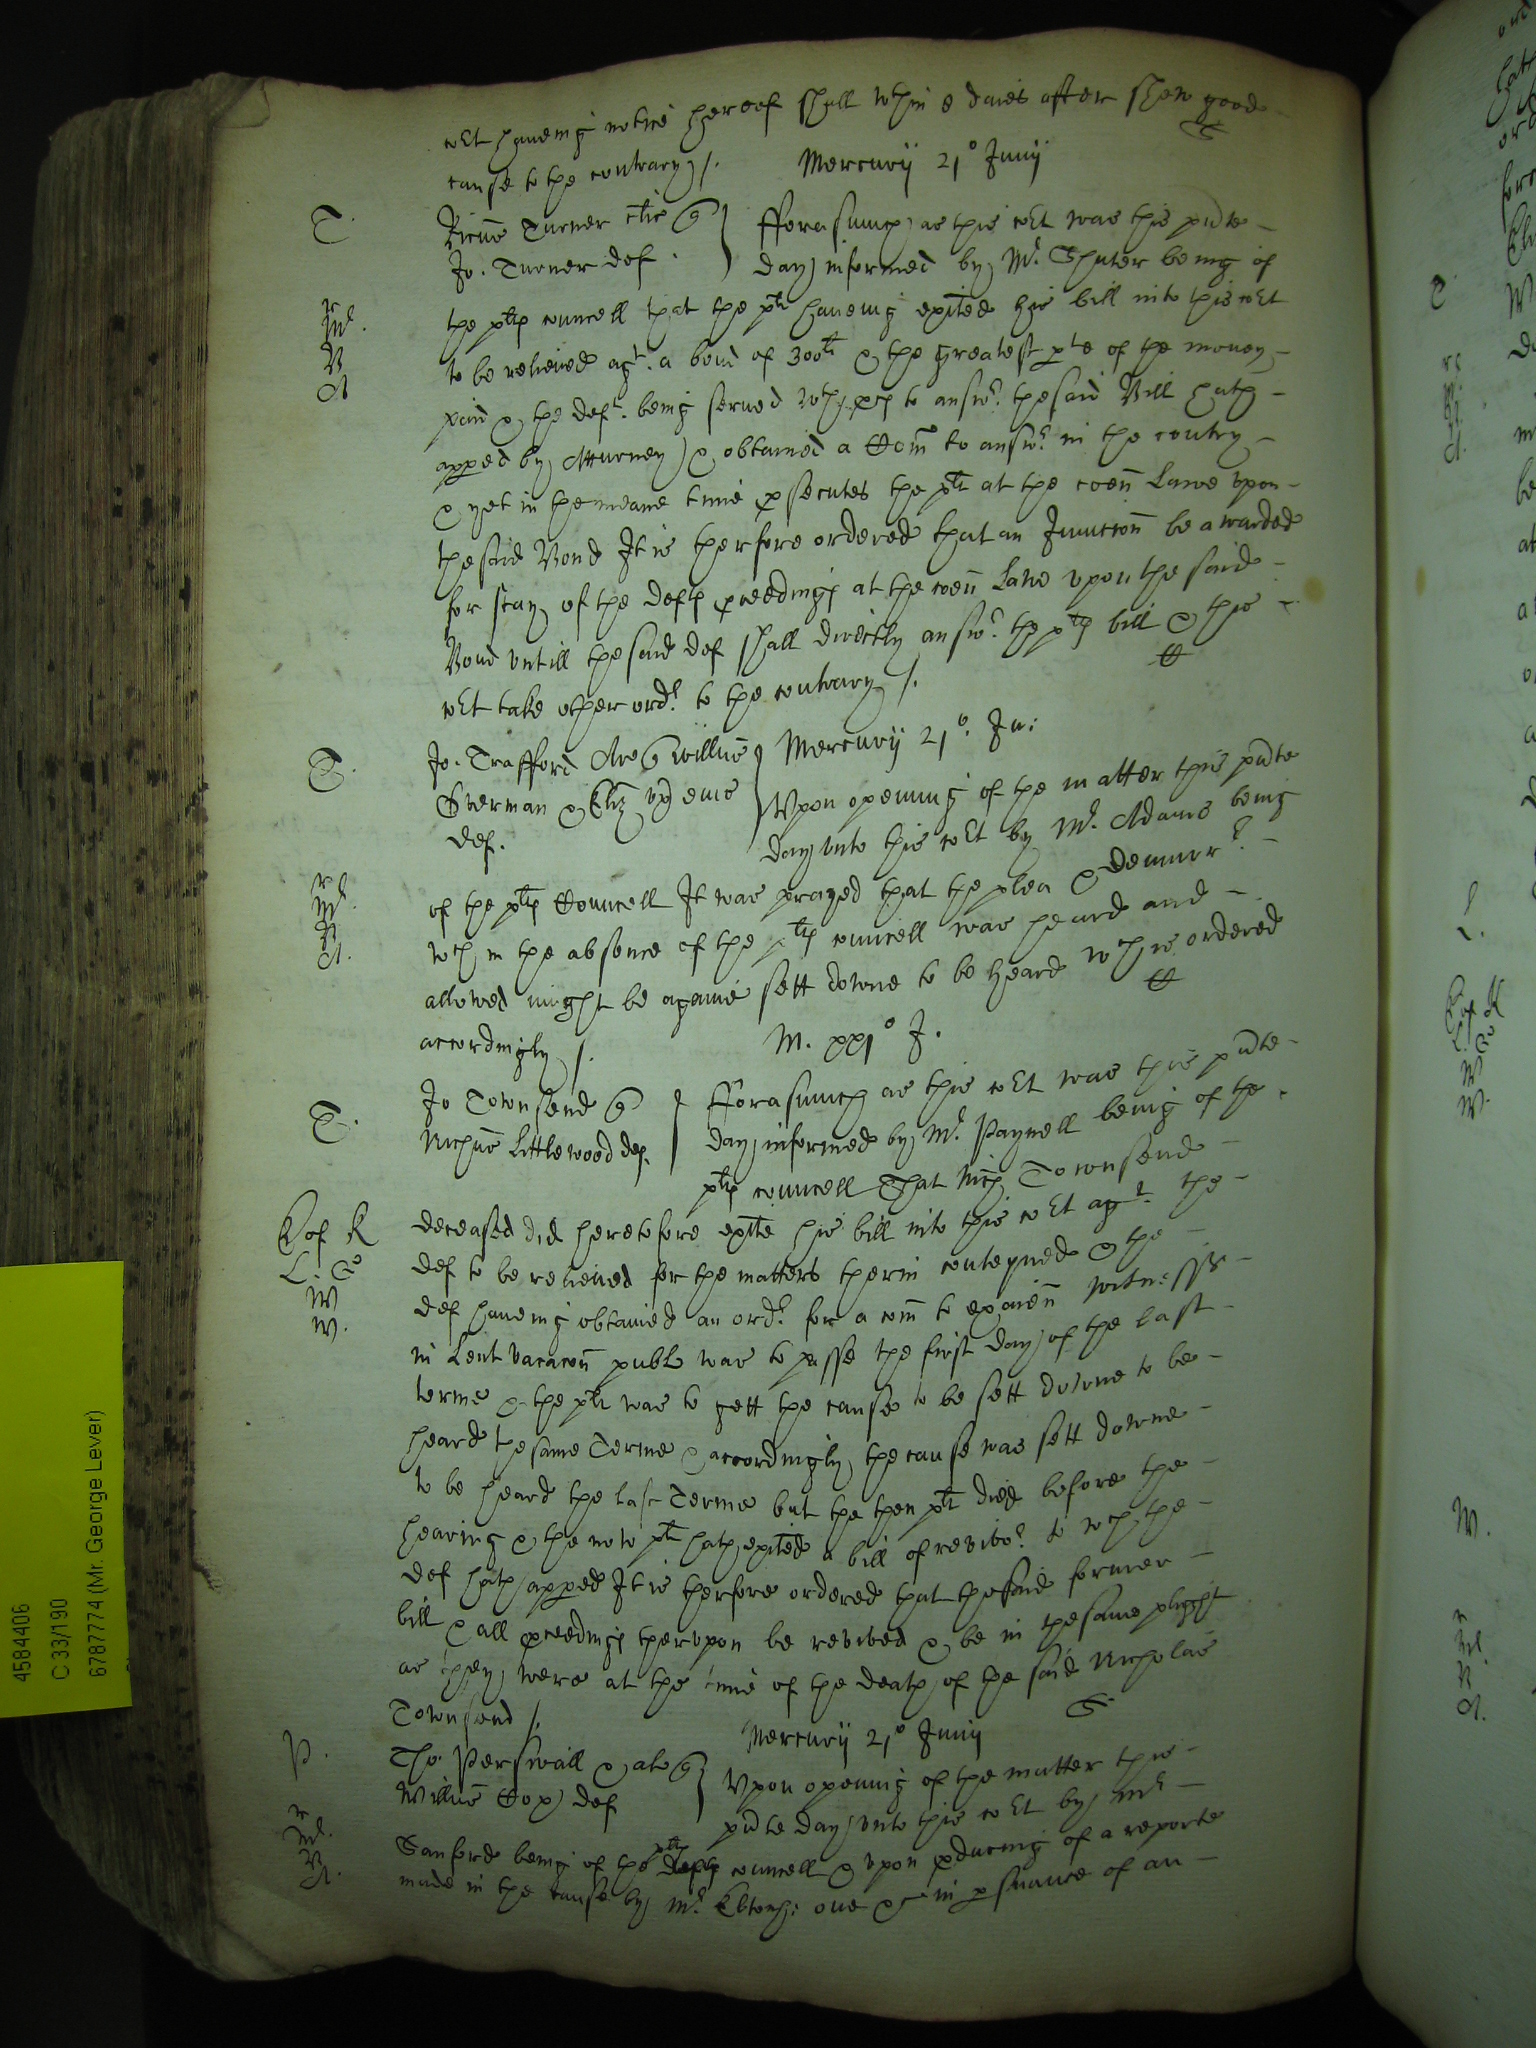 cort haveing notice hereof shall wthin 8 daies after shew good
cause to the contrary /.
Mercurij 21° Junij
T.
Ricus Turner clic q
Jo. Turner def.
fforasmuch as this cort was this pnte
day informed by Mr. Shuter being of
the pltes councell that the plt haveing exited his bill into this cort
to be releived agt. a bond of 300li & the greatest pte of the money
paid & the deft. being served wth pces to answr. the said Bill hath
apped by Atturney & obtained a Com to answr. in the contry
& yet in the meane time psecutes the plt at the coen Lawe vpon
the said Bond It is therfore ordered that an Junccon be awarded
for stay of the deftes pceedinges at the coen Lawe vpon the said
Bond vntill the said def shall directly answr. the pltes bill & this
cort take other ordr. to the contrary /.
T.
Jo. Trafford Ar q willus
Sherman & Eliz vx eius
def.
Mercurij 21°. Ju:
Vpon opening of the matter this pnte
day vnto this cort by Mr. Adams being
of the pltes Councell It was prayed that the plea & demurr.
wch in the absence of the pltes councell was heard and
allowed might be againe sett downe to be heard wch is ordered
accordingly /.
M. xxj° J.
T.
Jo Townsend q
Nichus Littlewood def.
fforasmuch as this cort was this pnte
day informed by Mr. Paynell being of the
pltes councell That Nich Townsend
deceased did heretofore exite his bill into this cort agt. the
def to be releived for the matters therin conteyned & the
def haveing obtained an ordr. for a com to exaien witnesses
in Lent vacacon publ was to passe the first day of the last
terme & the plt was to gett the cause to be sett downe to be
heard the same Terme & accordingly the cause was sett downe
to be heard the last Terme but the then plt died before the
hearing & the now plt hath exited a bill of revivor. to wch the
def hath apped It is therfore ordered that the said former
bill & all pceedinges thervpon be revived & be in the same plight
as they were at the time of the death of the said Nicholas
Townsend /.
Mercurij 21° Junij
P.
Tho. Perswall & al q
Willus Cox def
Vpon opening of the matter this
pnte day vnto this cort by Mr
Sanford being of the pltes councell & vpon pducing of a reporte
made in the cause by Mr. one &c in psuance of an
4584406
C 33/190
6787774 (Mr. George Lever)